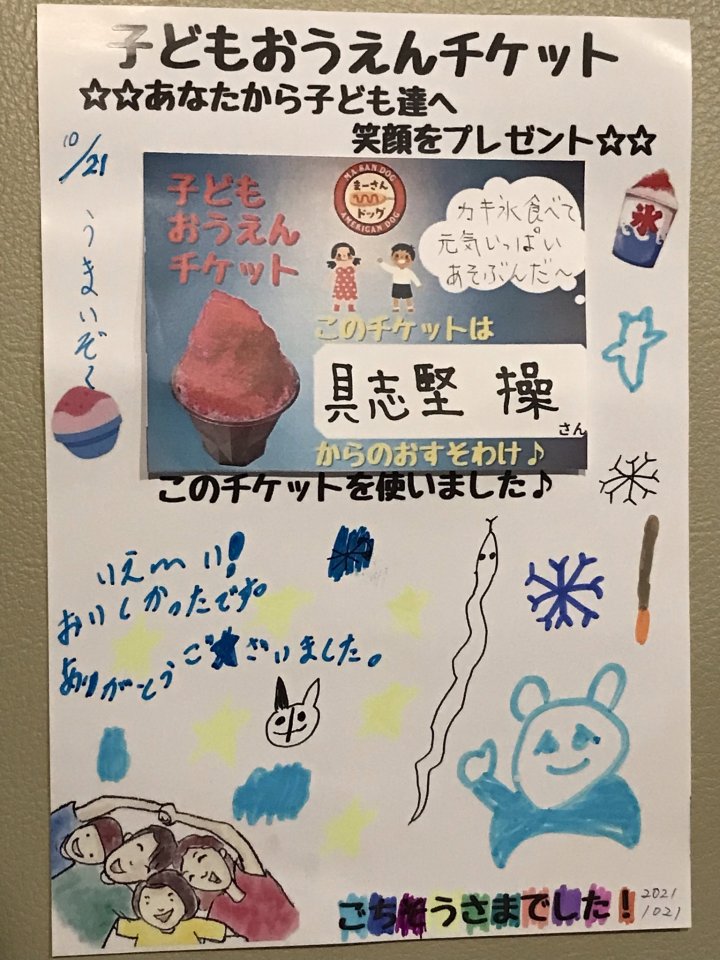 子どもおうえんチケット
☆☆あなたから子ども達へ
笑顔をプレゼント☆☆
10/21
うまいぞ〜
子ども
おうえん
チケット
MA SAN DOG
まーさん
ドッグ
AMERICAN DOG
カキ氷食べて
元気いっぱい
あそぶんだ〜
氷
このチケットは
具志堅 操
さん
からのおすそわけ♪
このチケットを使いました♪
いえーい!
おいしかったです。
ありがとうございました。
ごちそうさまでした!
2021
1021